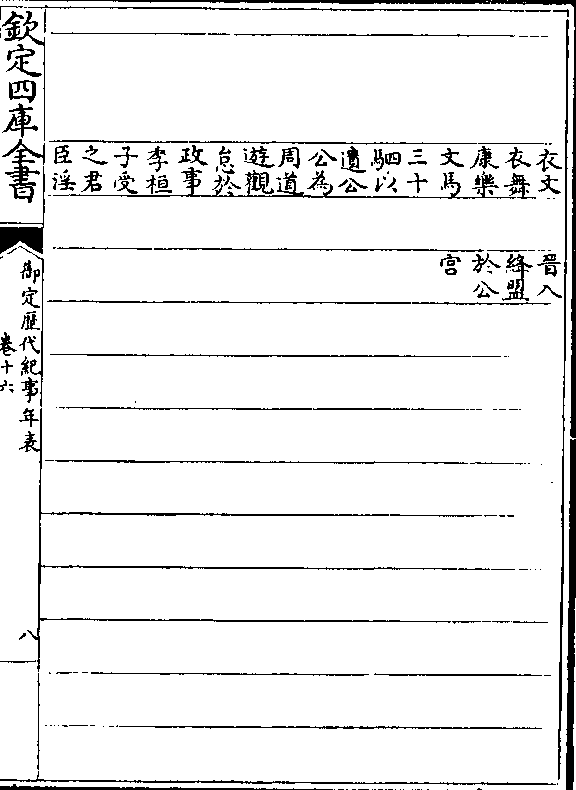 衣文
衣舞
康樂
文馬
三十
駟以
遺公
公為
周道
遊觀
怠於
政事
季桓
子受
之君
臣淫
晉入
絳盟
於公
宮
欽定四庫全書
御定歷代紀事年表
卷十六
八